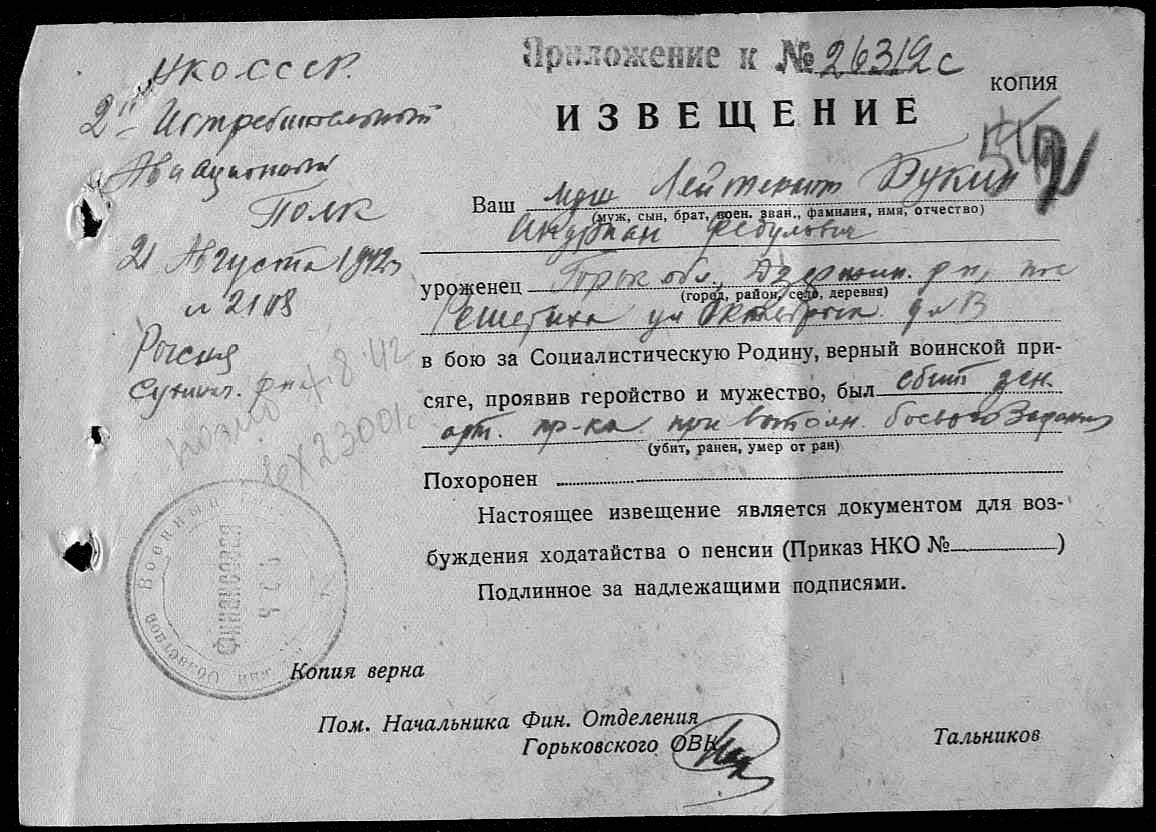 Приложение к № 26312с
КОПИЯ
ИЗВЕЩЕНИЕ
НКО СССР.
2й Истребительный
Авиационный
Полк
21 Августа 1942г
№ 2108
Ваш муж Лейтенант Букин
(муж, сын, брат, воен. зван., фамилия, имя, отчество)
Андриан Федулович
уроженец Горьк обл, Дзержин. р-н, пос
(город, район, село, деревня)
Решетиха ул Октябрьск. д № 13
в бою за Социалистическую Родину, верный воинской при-
сяге, проявив геройство и мужество, был сбит зен.
арт. пр-ка при выполн. боевого Задания
(убит, ранен, умер от ран)
Похоронен
Настоящее извещение является документом для воз-
буждения ходатайства о пенсии (Приказ НКО № )
Подлинное за надлежащими подписями.
8 42
23001с
Военный
Областной
Финансовая
Копия верна
Пом. Начальника Фин. Отделения
Горьковского ОВК
Тальников